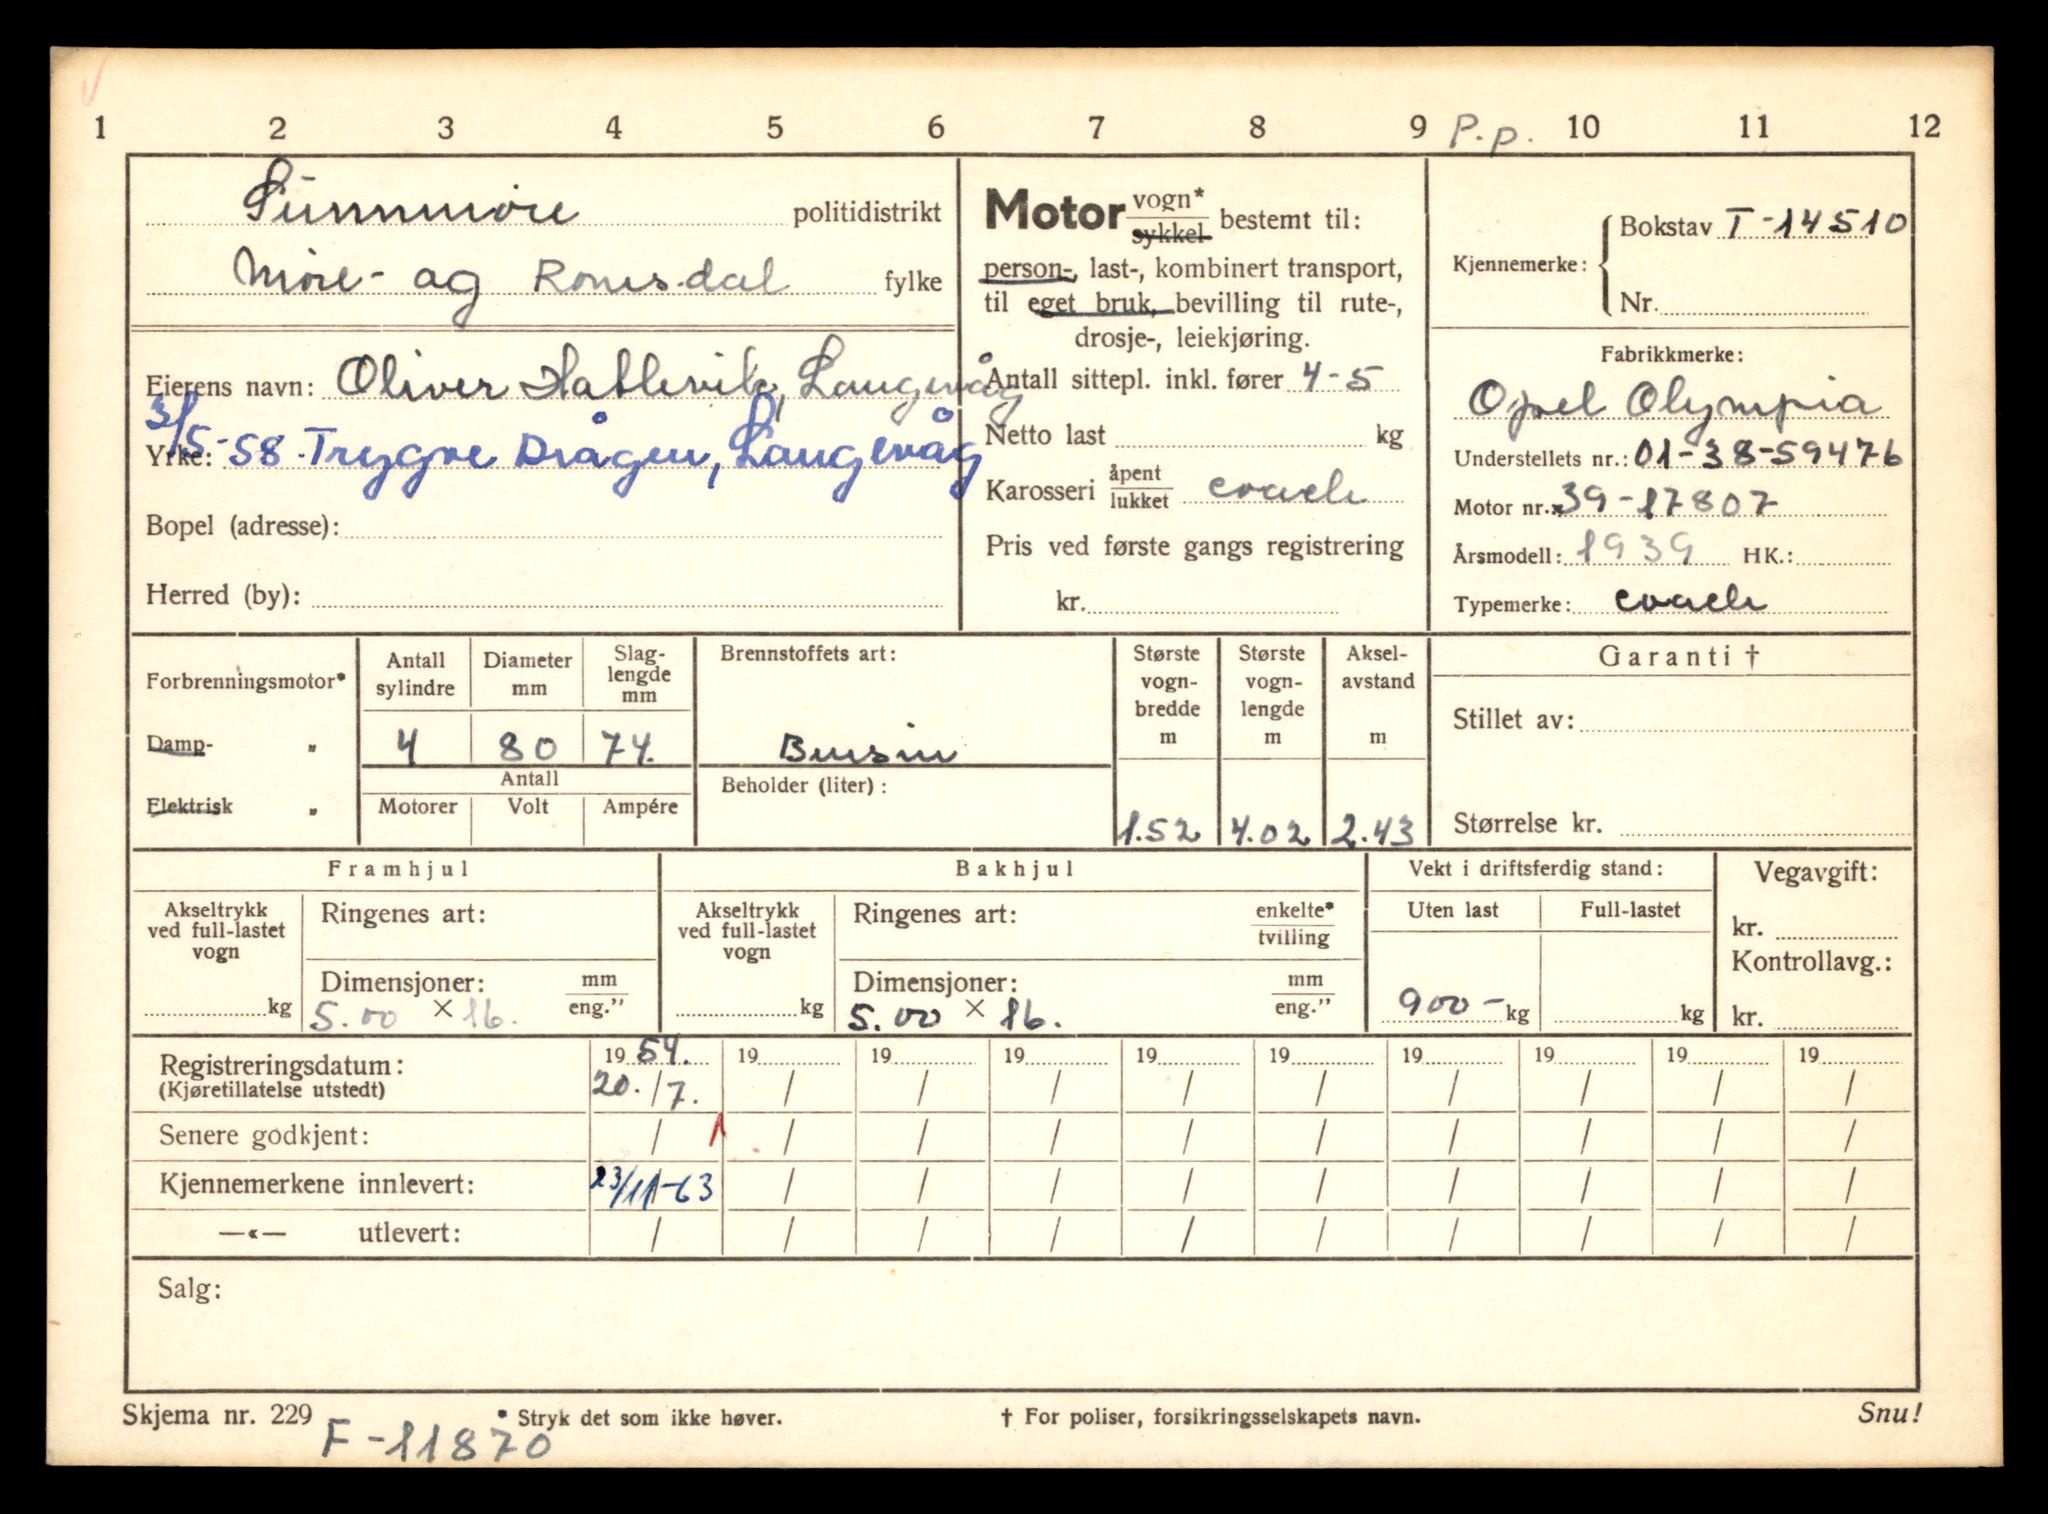 1 2 3 4 5 6 7 8 9 P.p. 10 11 12
Sunnmøre politidistrikt
Møre- og Romsdal fylke
Eierens navn: Oliver Hatlevik, Langevåg
3/5-58 Trygve Drågen, Langevåg
Yrke:
Bopel (adresse):
Herred (by):
Motor vogn* / sykkel bestemt til:
person-, last-, kombinert transport,
til eget bruk, bevilling til rute-,
drosje-, leiekjøring.
Antall sittepl. inkl. fører 4-5
Netto last kg
Karosseri åpent / lukket coach
Pris ved første gangs registrering
kr.
Kjennemerke: Bokstav T-14510
Nr.
Fabrikkmerke:
Opel Olympia
Understellets nr.: 01-38-59476
Motor nr.: 39-17807
Årsmodell: 1939 HK.:
Typemerke: coach
Forbrenningsmotor*
Damp- „
Elektrisk „
Antall sylindre
Diameter mm
Slag-
lengde
mm
4 80 74.
Antall
Motorer Volt Ampére
Brennstoffets art:
Bensin
Beholder (liter):
Største
vogn-
bredde
m
1.52
Største
vogn-
lengde
m
4.02
Aksel-
avstand
m
2.43
Garanti †
Stillet av:
Størrelse kr.
Framhjul
Akseltrykk
ved full-lastet
vogn
kg
Ringenes art:
Dimensjoner: mm / eng."
5.00 × 16.
Bakhjul
Akseltrykk
ved full-lastet
vogn
kg
Ringenes art: enkelte* / tvilling
Dimensjoner: mm / eng."
5.00 × 16.
Vekt i driftsferdig stand:
Uten last Full-lastet
900- kg kg
Vegavgift:
kr.
Kontrollavg.:
kr.
Registreringsdatum: 1954. 19 19 19 19 19 19 19 19 19
(Kjøretillatelse utstedt) 20./7. / / / / / / / / /
Senere godkjent: / / / / / / / / / /
Kjennemerkene innlevert: 23/11-63 / / / / / / / / /
—«— utlevert: / / / / / / / / / /
Salg:
Skjema nr. 229 * Stryk det som ikke høver. † For poliser, forsikringsselskapets navn. Snu!
F-11870